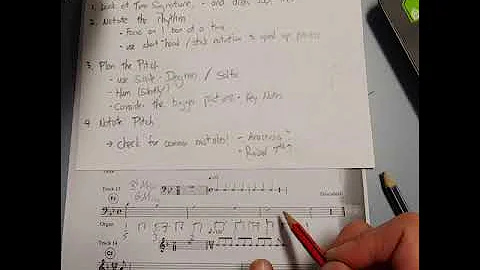 1. Look at Time Signature, - and
2. Notate the rhythm
- Focus on 1 bar at a time
- use short hand / stick notation to speed up process
3. Plan the Pitch
- use Scale-Degrees / Solfa
- Hum (silently)
- Consider the bigger picture - Key Notes
4. Notate Pitch
→ check for common mistakes! - Anacrusis?
- Raised 7th?
Track 13
Organ
Track 14